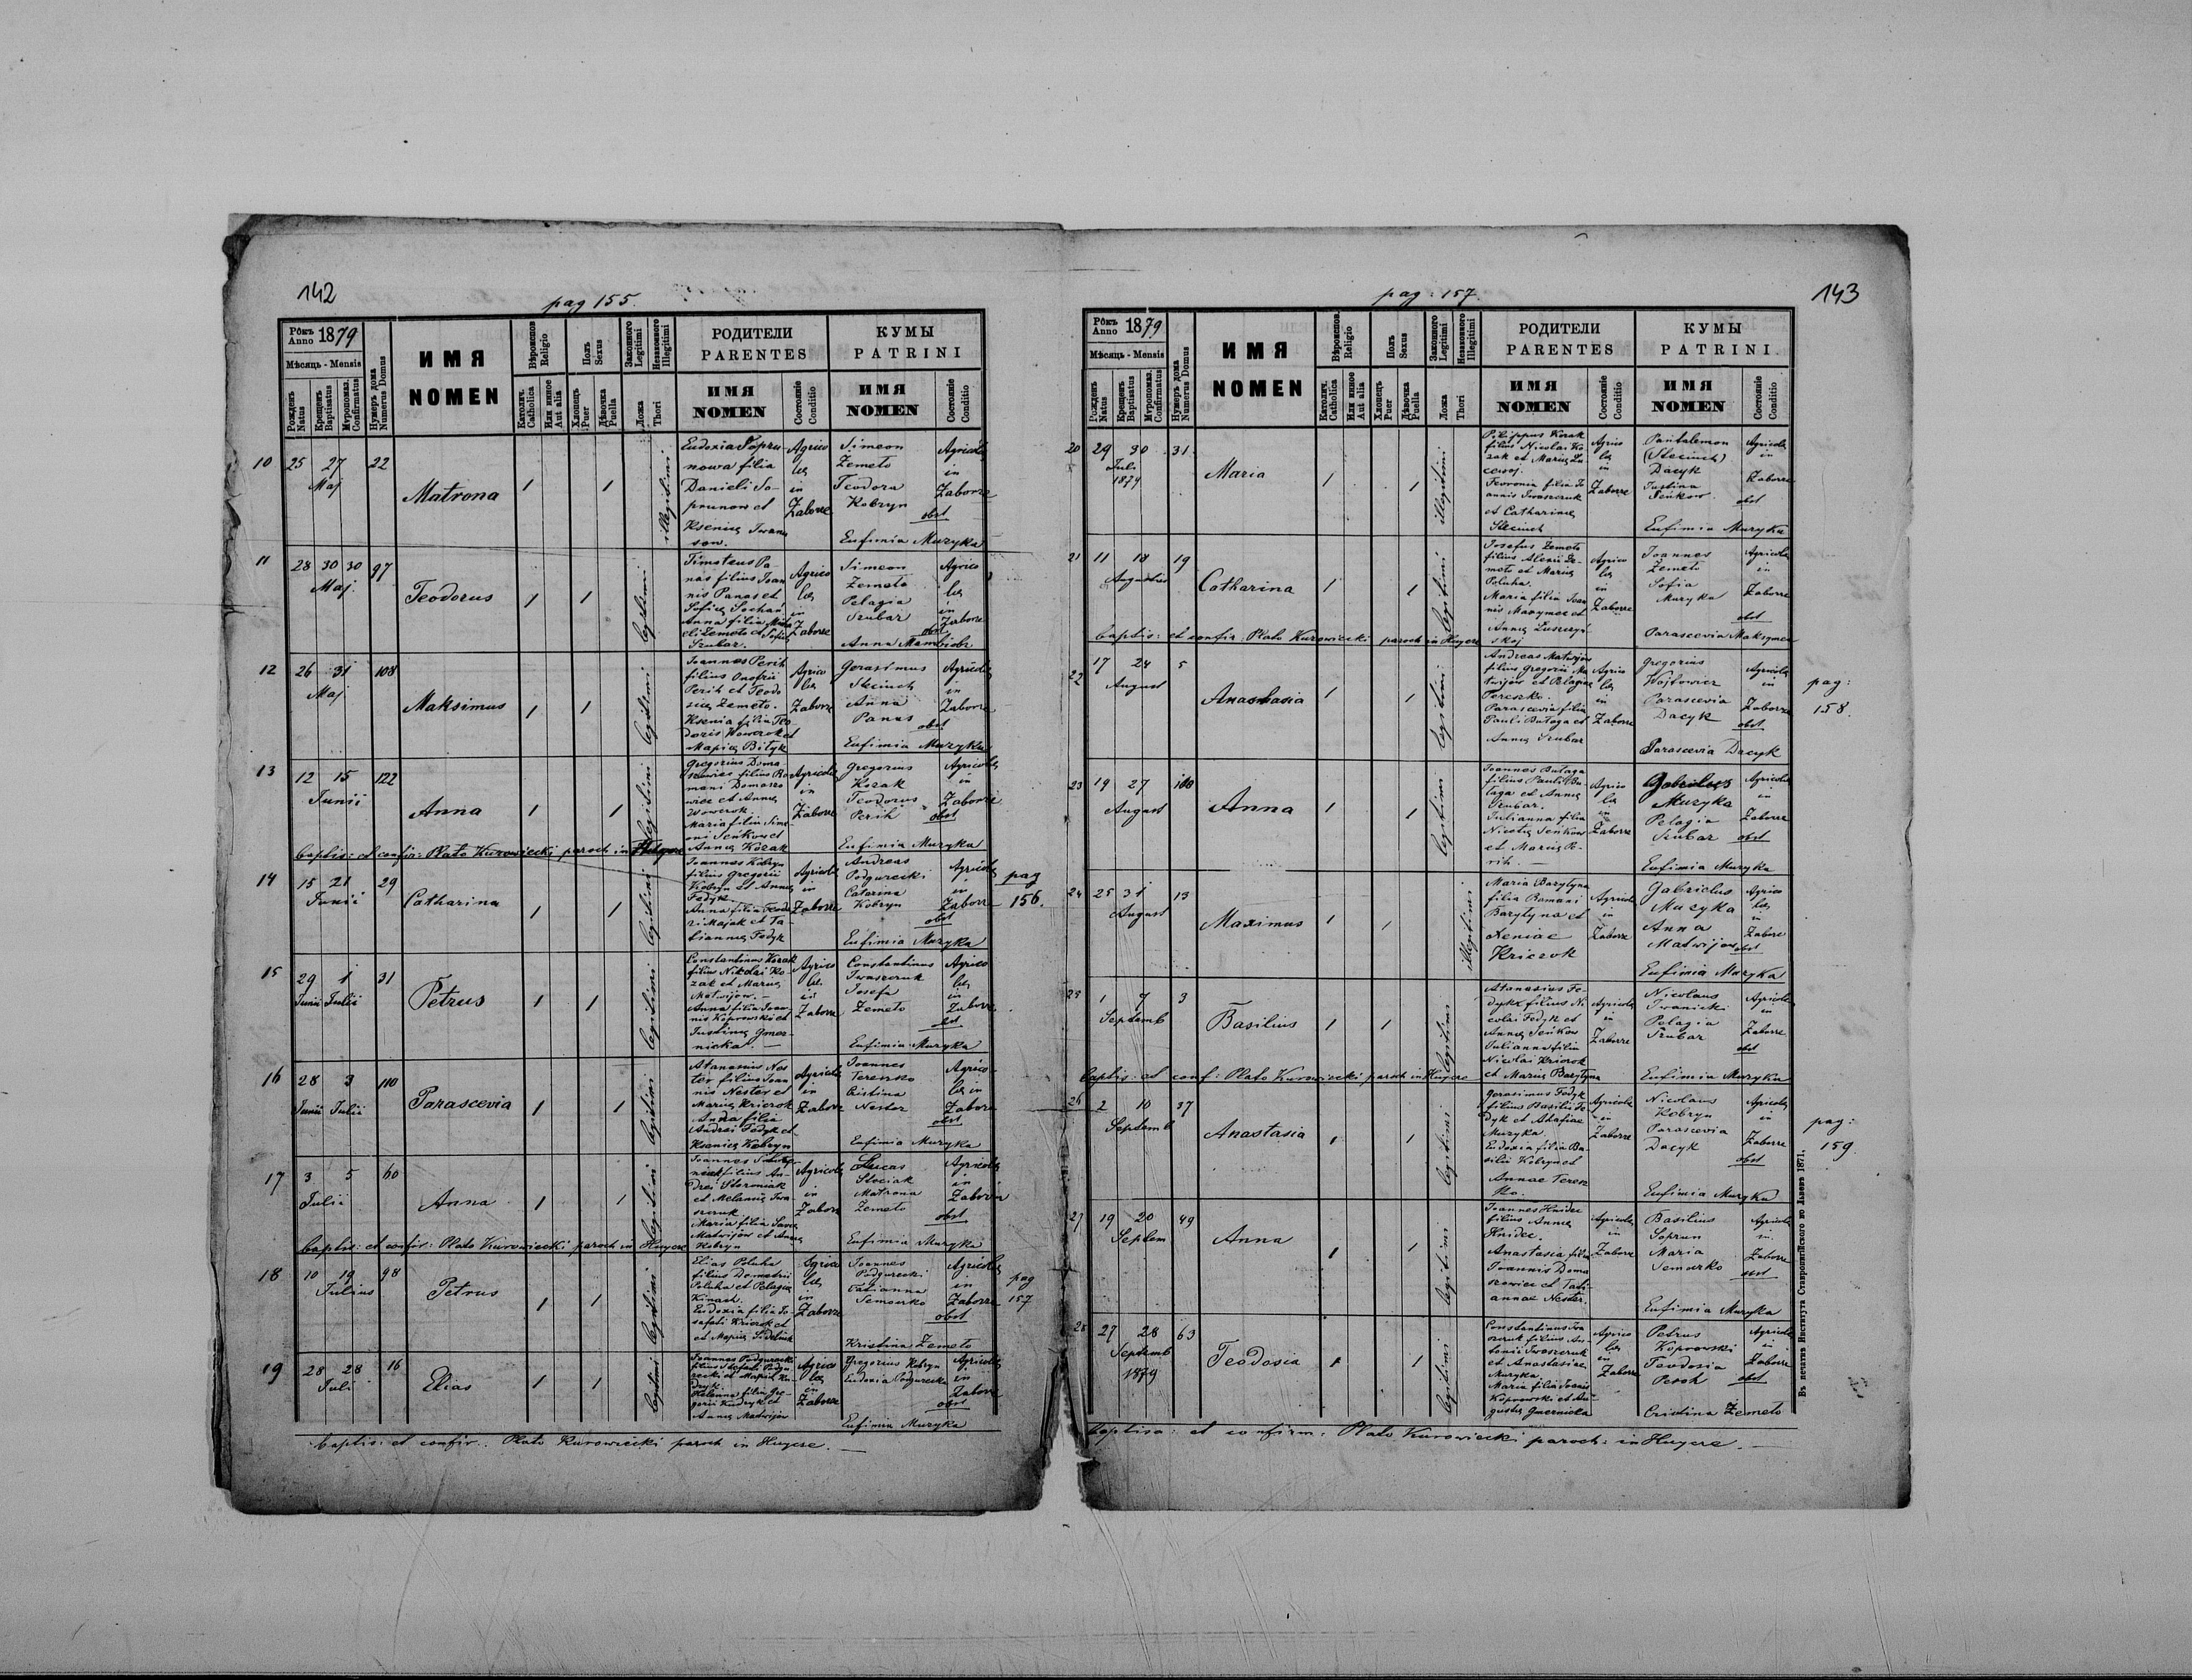 142
pag 155.
Рôкъ Anno 1879
Мѣсяць - Mensis
Рожденъ Natus
Крещенъ Baptisatus
Мѵропомаз. Confirmatus
Нумеръ дома Numerus Domus
ИМЯ NOMEN
Вѣроиспов. Religio
Католич. Catholica
Или инное Aut alia
Полъ Sexus
Хлопець Puer
Дѣвочка Puella
Законного Legitimi
Незаконного Illegitimi
Ложа Thori
РОДИТЕЛИ PARENTES
ИМЯ NOMEN
Состояніе Conditio
КУМЫ PATRINI
ИМЯ NOMEN
Состояніе Conditio
10 25 27 Maj 22 Matrona 1 1 illegitimi
Eudoxia Sopru-
nowa filia
Danieli So-
prunow et
Kseniæ Iwana
sow.
Agricolæ in Zaborze
Simeon
Zemeto
Teodora
Kobryn
obst
Eufimia Muzyka
Agricolæ in Zaborze
11 28 30 30 Maj. 97 Teodorus 1 1 legitimi
Timoteus Pa-
nas filius Joan
nis Panas et
Sofiæ Sochan
Anna filia Micha
eli Zemeto et Sofiæ
Szubar.
Agricolæ in Zaborze
Simeon
Zemeto
Pelagia
Szubar
obst
Agricolæ in Zaborze
12 26 31 Maj 108 Maksimus 1 1 legitimi
Joannes Perih
filius Onofrii
Perih et Teodo
siæ Zemeto.
Ksenia filia Teo
doris Woworok et
Maria Bityk
Agricolæ Zaborze
Gerasimus
Steciuch
Anna
Panas
obst
Eufimia Muzyka
Agricolæ in Zaborze
13 12 15 Junii 122 Anna 1 1 legitimi
Gregorius Doma
szowiec filius Ro
mani Domaszo
wiec et Annæ
Woworok.
Maria filia Sime
oni Seńkow et
Annæ Kozak
Agricolæ in Zaborze
Gregorius
Kozak
Teodorus
Perih
obst
Eufimia Muzyka
Agricolæ in Zaborze
baptis: et confir: Plato Kurowiecki paroch in Hujcze
14 15 21 Junii 29 Catharina 1 1 legitimi
Joannes Kobryn
filius Gregorii
Kobryn et Annæ
Fedyk
Anna filia Teodo
ri Majak et Ta
tiannæ Fedyk
Agricolæ in Zaborze
Andreas
Podgurecki
Catarina
Kobryn
obst
Eufimia Muzyka
Agricolæ in Zaborze
pag 156.
15 29 1 Junii Julii 31 Petrus 1 1 legitimi
Constantinus Kozak
filius Nikolai Ko-
zak et Mariæ
Matwijow. —
Anna filia Joan-
nis Koprowski et
Justinæ Gmer-
nicka. —
Agricolæ in Zaborze
Constantinus
Iwaszczuk
Josefa
Zemeto
obst
Eufimia Muzyka
Agricolæ in Zaborze
16 28 3 Junii Julii 110 Parascevia 1 1 legitimi
Atanasius Nes
ter filius Joan
nis Nester et
Mariæ Kriczok
Anna filia
Andrei Fedyk et
Kseniæ Kobryn
Agricolæ in Zaborze
Joannes
Tereszko
Cristina
Nester
obst
Eufimia Muzyka
Agricolæ in Zaborze
17 3 5 Julii 60 Anna 1 1 legitimi
filius An-
drei
et Melaniæ Iwa
szczuk
Maria filia Savæ
Matwijow et Annæ
Kobryn
Agricolæ in Zaborze
Lucas
Stociak
Matrona
Zemeto
obst
Eufimia Muzyka
Agricolæ in Zaborze
baptis: et confir: Plato Kurowiecki paroch in Hujcze
18 10 19 Julius 98 Petrus 1 1 legitimi
Elias Poluha
filius Demetrii
Poluha et Pelagiæ
Kinach.
Eudoxia filia Jo-
safati Kriczok et
Agricolæ in Zaborze
Joannes
Podgurecki
Tatianna
Semaszko
obst
Kristina Zemeto
Agricolæ in Zaborze
pag 157
19 28 28 Juli 16 Elias 1 1 legitimi
Joannes Podgurecki
filius Stefani Podgu
recki et Mariæ Ku
dryk.
Helenna filia Gre-
gorii Kudryk et
Annæ Matwijow
Agricolæ in Zaborze
Gregorius Kobryn
Eudoxia Podgurecka
obst
Eufimia Muzyka
Agricolæ in Zaborze
baptis: et confir.: Plato Kurowiecki paroch in Hujcze. —
143
pag: 157.
Рôкъ Anno 1879
Мѣсяць - Mensis
Рожденъ Natus
Крещенъ Baptisatus
Мѵропомаз. Confirmatus
Нумеръ дома Numerus Domus
ИМЯ NOMEN
Вѣроиспов. Religio
Католич. Catholica
Или инное Aut alia
Полъ Sexus
Хлопець Puer
Дѣвочка Puella
Законного Legitimi
Незаконного Illegitimi
Ложа Thori
РОДИТЕЛИ PARENTES
ИМЯ NOMEN
Состояніе Conditio
КУМЫ PATRINI.
ИМЯ NOMEN
Состояніе Conditio
20 29 30 Juli 1879 31. Maria 1 1 illegitimi
Pilippus Kozak
filius Nicolai Ko
zak et Mariæ
Fewronia filia Jo
annis Iwaszczuk
et Catharinæ
Steciuch
Agricolæ in Zaborze
Pantalemon
(Steciuch)
Dacyk
Justina
Seńkow
obst
Eufimia Muzyka
Agricolæ in Zaborze
21 11 18 Augustus 19 Catharina 1 1 legitimi
Josefus Zemeto
filius Alexii Ze-
meto et Mariæ
Poluha.
Maria filia Joan
nis Maxymec et
Annæ
Agricolæ in Zaborze
Joannes
Zemeto
Sofia
Muzyka
obst
Parascevia Maksymec
Agricolæ in Zaborze
baptis: et confir: Plato Kurowiecki paroch in Hujcze
22 17 24 August 5 Anastasia 1 1 legitimi
Andreas Matwijow
filius Gregorii Ma
twijow et Pelagiæ
Tereszko.
Parascevia filia
Pauli Bataga et
Annæ Szubar
Agricolæ in Zaborze
Gregorius
Wojtowicz
Parascevia
Dacyk
obst
Parascevia Dacyk
Agricolæ in Zaborze
pag: 158.
23 19 27 August 108 Anna 1 1 legitimi
Joannes Bataga
filius Pauli Ba-
taga et Annæ
Szubar.
Julianna filia
Nicolai Seńkow
et Mariæ Pe-
rih. —
Agricolæ in Zaborze
Gabrielus
Muzyka
Pelagia
Szubar
obst
Eufimia Muzyka
Agricolæ in Zaborze
24 25 31 August 13 Maximus 1 1 illegitimi
Maria Barytyna
filia Romani
Barytyna et
Xeniae
Kriczok
Agricolæ in Zaborze
Gabrielus
Muzyka
Anna
Matwijow
obst
Eufimia Muzyka
Agricolæ in Zaborze
25 1 7 Septemb 3 Basilius 1 1 legitimi
Atanasius Fe-
dyk filius Ni
colai Fedyk et
Annæ Seńkow
Julianna filia
Nicolai Kriczok
et Mariæ Barytyna
Agricolæ in Zaborze
Nicolaus
Iwanicki
Pelagia
Szubar
obst
Eufimia Muzyka
Agricolæ in Zaborze
baptis: et conf: Plato Kurowiecki paroch in Hujcze
26 2 10 Septemb 37 Anastasia 1 1 legitimi
Gerasimus Fedyk
filius Basilii Fe
dyk et Ahafiae
Muzyka.
Eudoxia filia Ba-
silii Kobryn et
Annae Teresz
ko.
Agricolæ in Zaborze
Nicolaus
Kobryn
Parascevia
Dacyk
obst
Eufimia Muzyka
Agricolæ in Zaborze
pag: 159.
27 19 20 Septem 49 Anna 1 1 legitimi
Joannes Hnidec
filius Annæ
Hnidec.
Anastasia filia
Joannis Doma
szowiec et Tati-
annae Nester.
Agricolæ in Zaborze
Basilius
Soprun
Maria
Semaszko
obst
Eufimia Muzyka
Agricolæ in Zaborze
28 27 28 Septemb 1879 63 Teodosia 1 1 legitimi
Constantinus Iwa
szczuk filius An-
tonii Iwaszczuk
et Anastasiae
Muzyka
Maria filia Joanis
Koprowski et Au-
gusta Gmernicka
Agricolæ in Zaborze
Petrus
Koprowski
Teodosia
Pesoh
obst
Cristina Zemeto
Agricolæ in Zaborze
baptisa: et confirm: Plato Kurowiecki paroch: in Hujcze. —
Въ печатни Института Ставропигійского во Львовѣ 1871.